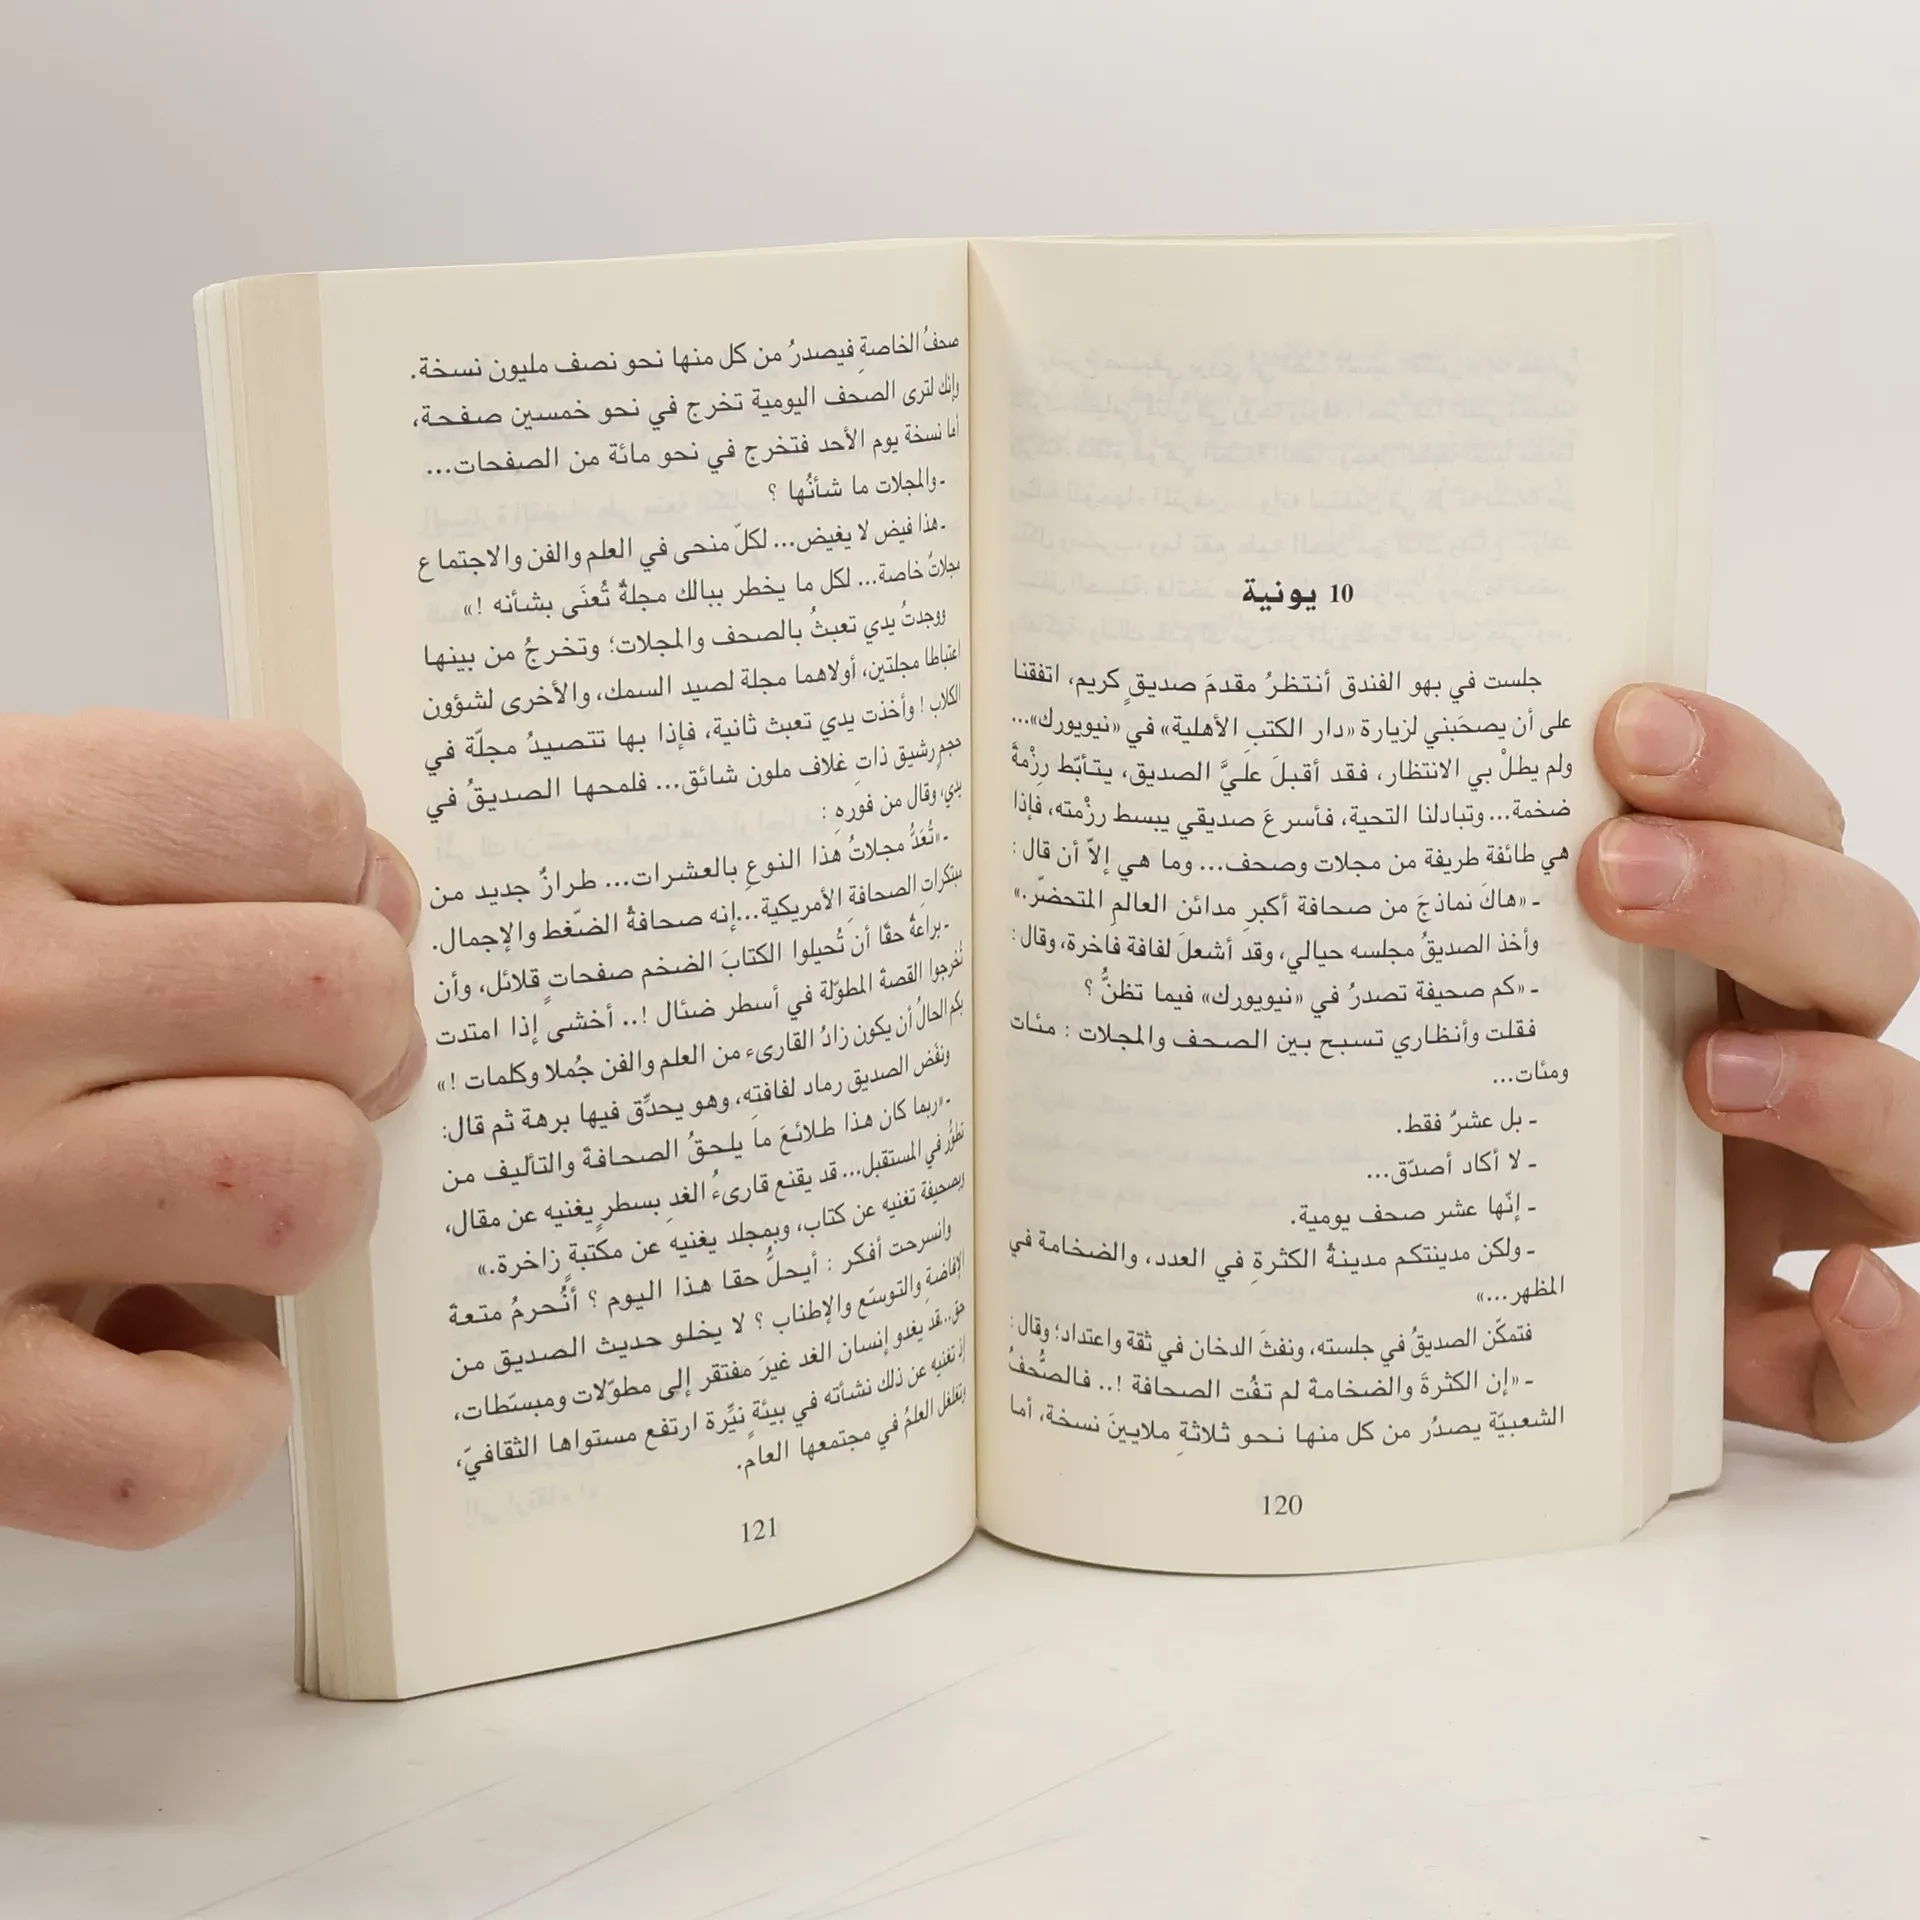 10 يونية
جلست في بهو الفندق أنتظرُ مقدمَ صديقٍ كريم، اتفقنا
على أن يصحَبني لزيارة «دار الكتب الأهلية» في «نيويورك»...
ولم يطلْ بي الانتظار، فقد أقبلَ علَيَّ الصديق، يتأبّط رِزْمةً
ضخمة... وتبادلنا التحية، فأسرعَ صديقي يبسط رزْمته، فإذا
هي طائفة طريفة من مجلات وصحف... وما هي إلاّ أن قال :
ـ «هاكَ نماذجَ من صحافة أكبرِ مدائن العالمِ المتحضّر.»
وأخذ الصديقُ مجلسه حيالي، وقد أشعلَ لفافة فاخرة، وقال :
ـ «كم صحيفة تصدرُ في «نيويورك» فيما تظنُّ ؟
فقلت وأنظاري تسبح بين الصحف والمجلات : مئات
ومئات...
ـ بل عشرٌ فقط.
ـ لا أكاد أصدّق...
ـ إنّها عشر صحف يومية.
ـ ولكن مدينتكم مدينةُ الكثرةِ في العدد، والضخامة في
المظهر...»
فتمكّن الصديقُ في جلسته، ونفثَ الدخان في ثقة واعتداد؛ وقال :
ـ «إن الكثرةَ والضخامة لم تفُت الصحافة !.. فالصُّحفُ
الشعبيّة يصدُر من كل منها نحو ثلاثةِ ملايينَ نسخة، أما
120
صحفُ الخاصةِ فيصدرُ من كل منها نحو نصف مليون نسخة.
وإنك لترى الصحف اليومية تخرج في نحو خمسين صفحة،
أما نسخة يوم الأحد فتخرج في نحو مائة من الصفحات...
ـ والمجلات ما شأنُها ؟
ـ هذا فيض لا يغيض... لكلّ منحى في العلم والفن والاجتماع
مجلاتٌ خاصة... لكل ما يخطر ببالك مجلةٌ تُعنَى بشأنه !»
ووجدتُ يدي تعبثُ بالصحف والمجلات؛ وتخرجُ من بينها
اعتباطا مجلتين، أولاهما مجلة لصيد السمك، والأخرى لشؤون
الكلاب ! وأخذت يدي تعبث ثانية، فإذا بها تتصيدُ مجلّة في
حجمٍ رشيق ذاتِ غلاف ملون شائق... فلمحها الصديقُ في
يدي، وقال من فورهِ :
ـ «تُعَدُّ مجلاتُ هذا النوعِ بالعشرات... طرازٌ جديد من
مبتكراتِ الصحافةِ الأمريكية...إنه صحافةُ الضّغط والإجمال.
ـ براعةٌ حقّا أن تُحيلوا الكتابَ الضخم صفحاتٍ قلائل، وأن
تُخرجوا القصة المطوّلة في أسطر ضئال !.. أخشى إذا امتدت
بكم الحالُ أن يكون زادُ القارىء من العلم والفن جُملا وكلمات !»
ونفَض الصديق رماد لفافته، وهو يحدِّق فيها برهة ثم قال:
ـ «ربما كان هذا طلائعَ ما يلحقُ الصحافةَ والتأليف من
تطوُّر في المستقبل... قد يقنع قارىءُ الغدِ بسطرٍ يغنيه عن مقال،
وبصحيفة تغنيه عن كتاب، وبمجلد يغنيه عن مكتبةٍ زاخرة.»
وانسرحت أفكر : أيحلُّ حقا هذا اليوم ؟ أنُحرمُ متعةَ
الإفاضةِ والتوسّع والإطناب ؟ لا يخلو حديث الصديق من
حق..قد يغدو إنسان الغد غيرَ مفتقر إلى مطوّلات ومبسّطات،
إذ تغنيه عن ذلك نشأته في بيئةٍ نيِّرة ارتفع مستواها الثقافيّ،
وتغلغل العلمُ في مجتمعها العام.
121